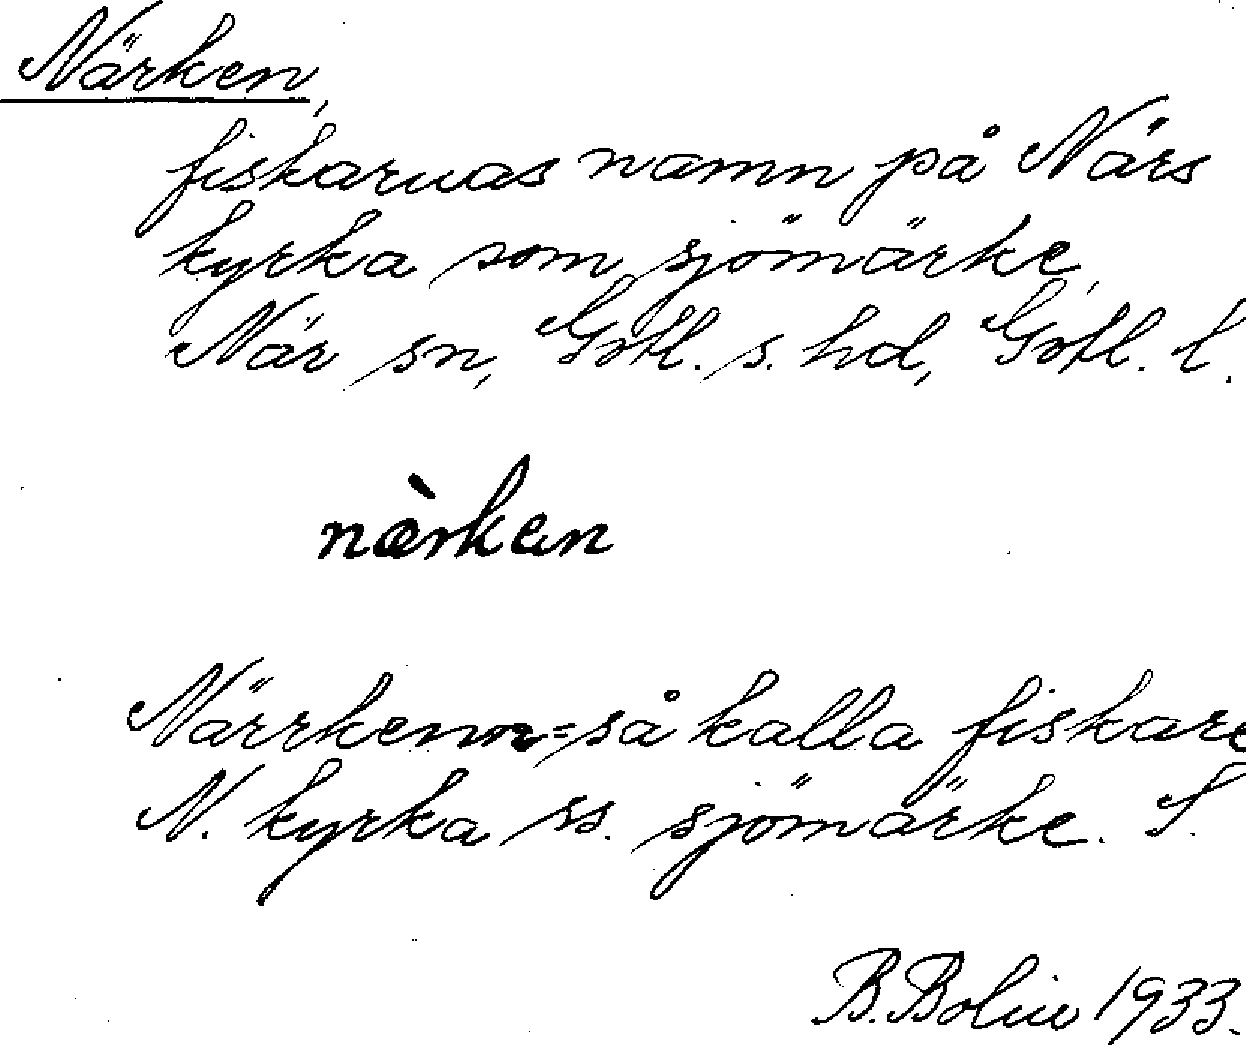 Närken,
fiskarnas namn på Närs
kyrka som sjömärke,
När sn, Gotl. s. hd, Gotl. l.
nærkən
Närrken = så kalla fiskare
N. kyrka ss. sjömärke. S.
B. Bolin 1933.